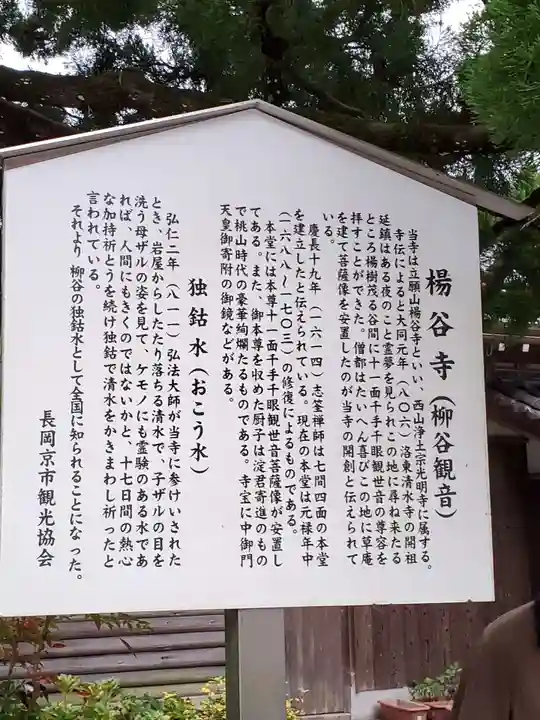 楊谷寺(柳谷観音)
当寺は立願山楊谷寺といい、西山浄土宗光明寺に属する。
寺伝によると大同元年(八〇六)洛東清水寺の開祖
延鎮はある夜のこと霊夢を見られこの地に尋ね来たる
ところ楊樹茂る谷間に十一面千手千眼観世音の尊容を
拝すことができた。僧都はたいへん喜びこの地に草庵
を建て菩薩像を安置したのが当寺の開創と伝えられて
いる。
慶長十九年(一六一四)志筌禅師は七間四面の本堂
を建立したと伝えられている。現在の本堂は元禄年中
(一六八八〜一七〇三)の修復によるものである。
本堂には本尊十一面千手千眼観世音菩薩像が安置し
てある。また、御本尊を収めた厨子は淀君寄進のもの
で桃山時代の豪華絢爛たるものである。寺宝に中御門
天皇御寄附の御鏡などがある。
独鈷水(おこう水)
弘仁二年(八一一)弘法大師が当寺に参けいされた
とき、岩屋からしたたり落ちる清水で、子ザルの目を
洗う母ザルの姿を見て、ケモノにも霊験のある水であ
れば、人間にもきくのではないかと、十七日間の熱心
な加持祈とうを続け独鈷で清水をかきまわし祈ったと
言われている。
それより柳谷の独鈷水として全国に知られることになった。
長岡京市観光協会